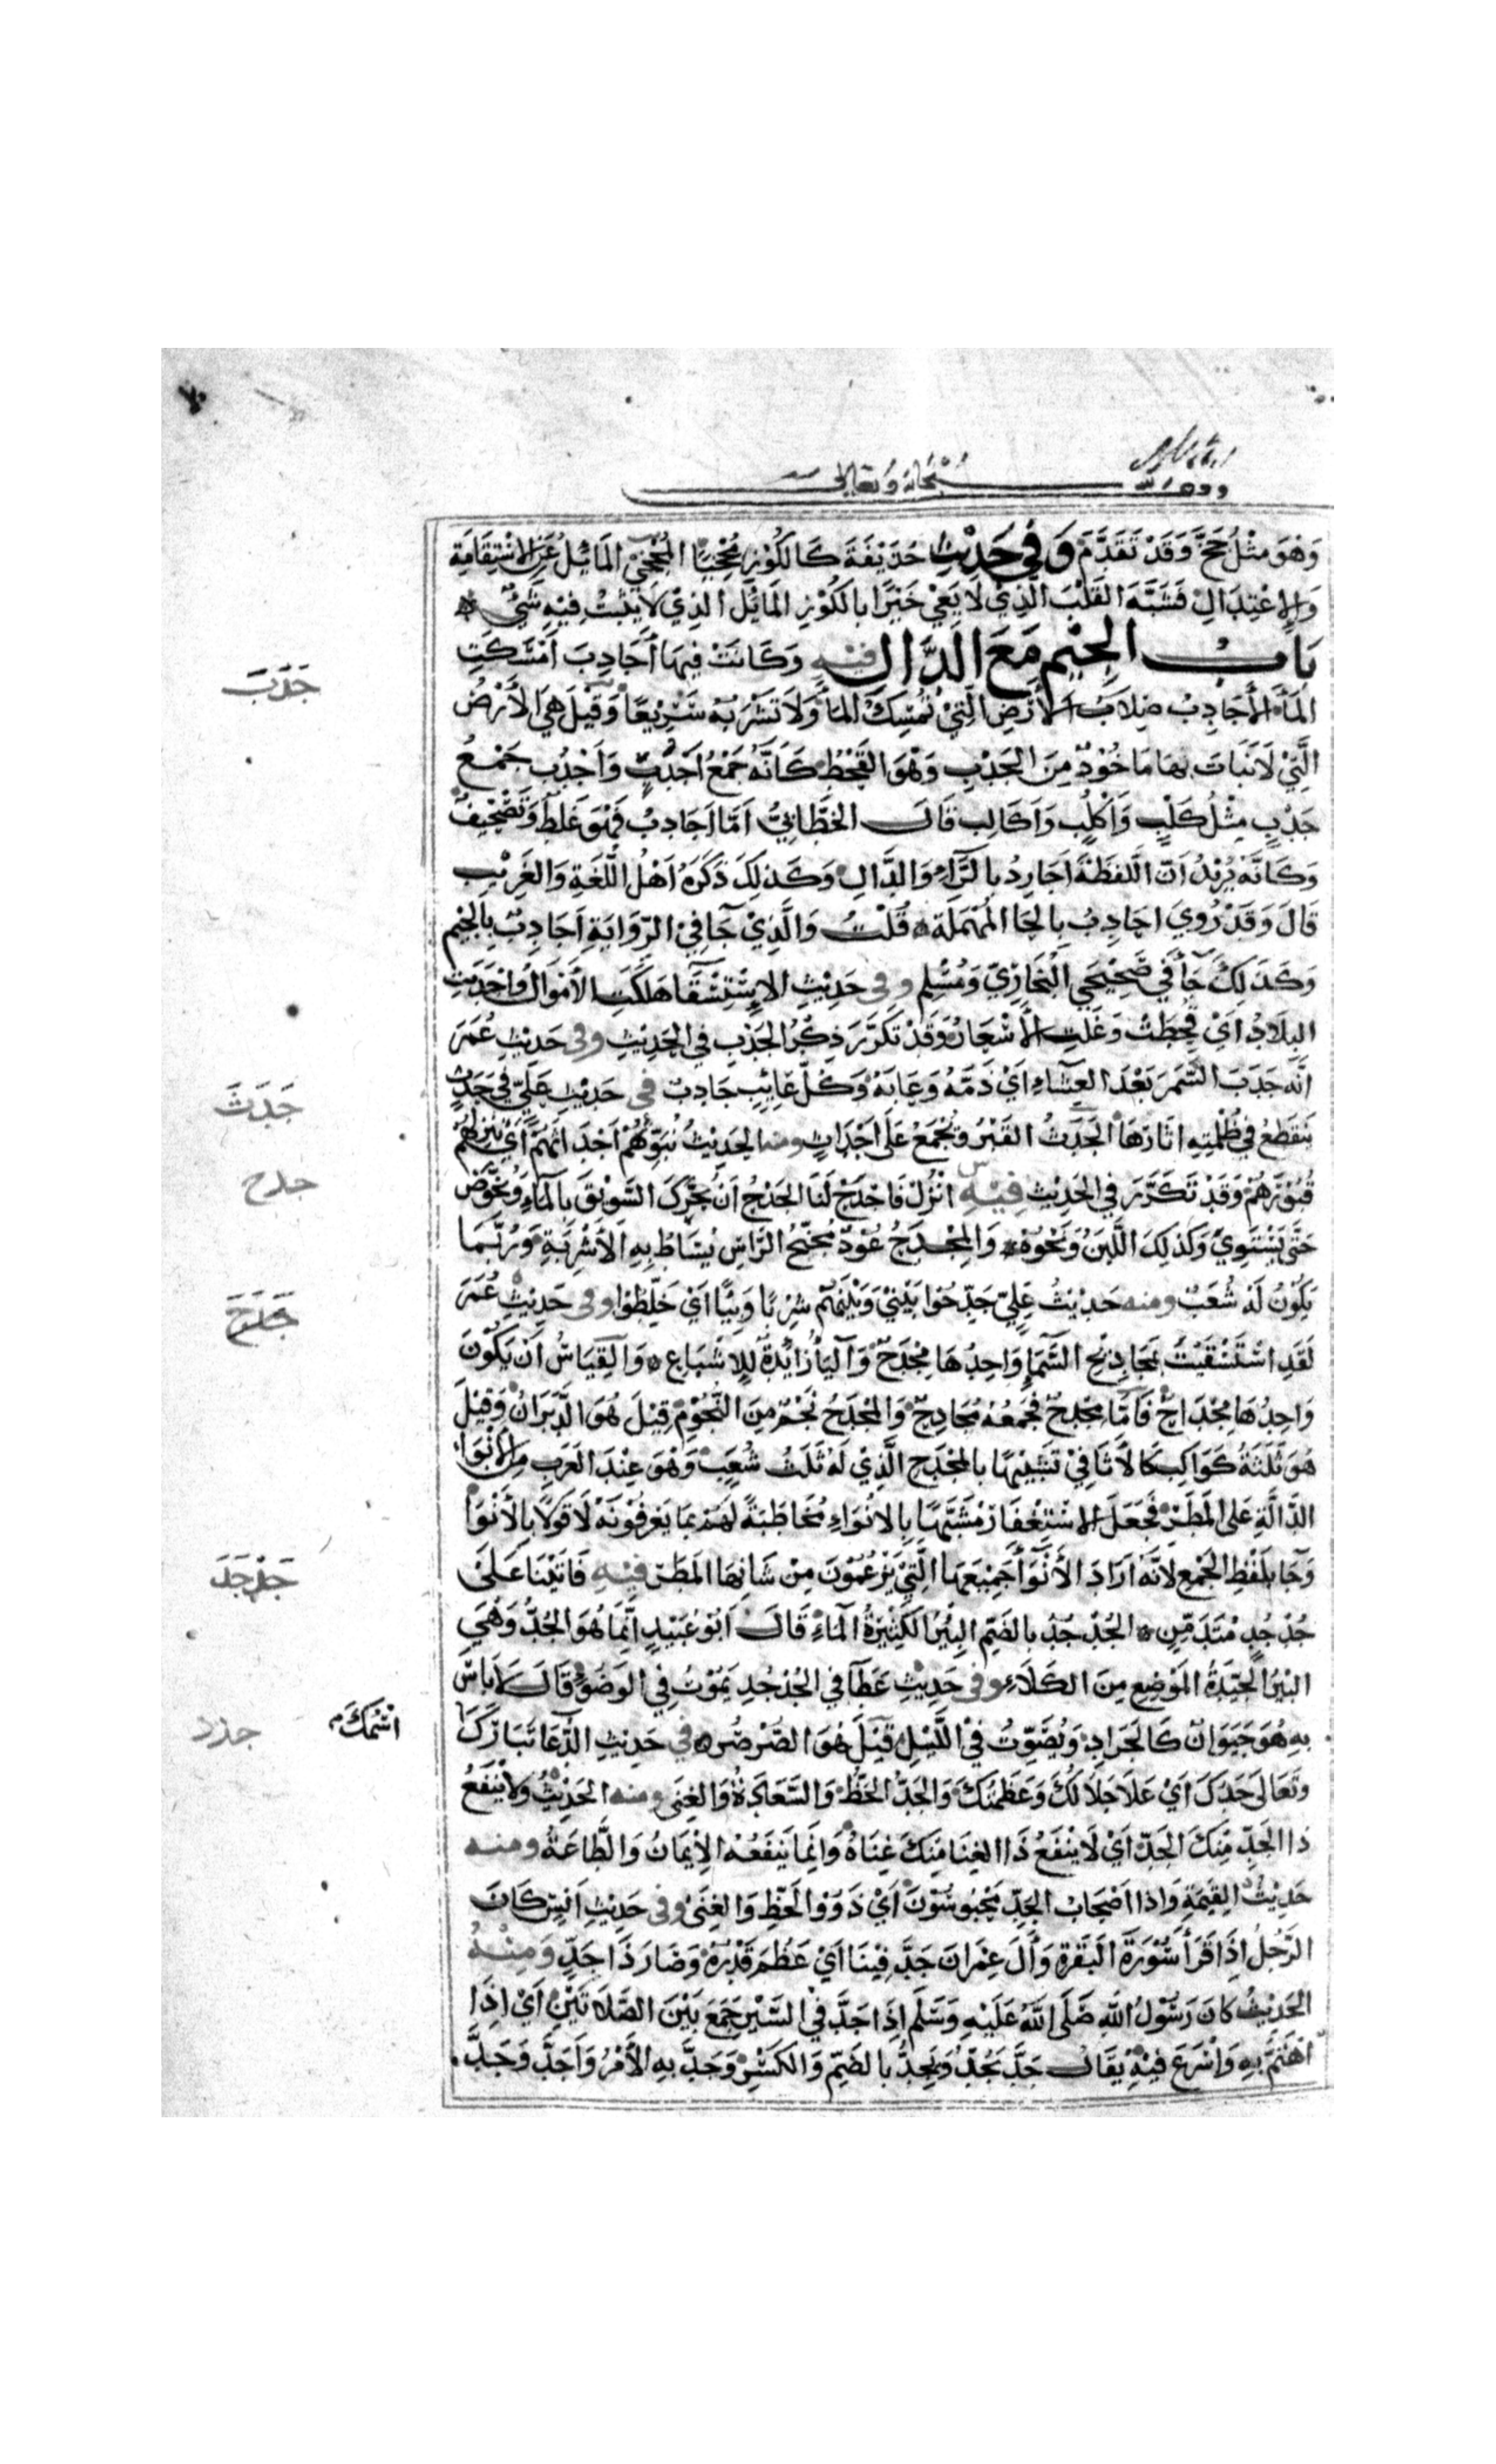 سبحانه وتعالى
وَهْوَ مِثْلُ جَخَّ وَقَدْ تَقَدَّمَ وَفِي حَدِيْثِ حُذَيْفَةَ كَالكُوْزِ مُجَخِّيًا المُجَخِّيْ المَائِلُ عَنِ الِاسْتِقَامَةِ
وَالِاعْتِدَالِ فَشَبَّهَ القَلْبَ الَّذِيْ لَا يَعِيْ خَيْرًا بِالكُوْزِ المَائِلِ الَّذِيْ لَا يَثْبُتُ فِيْهِ شَيْءٌ
بَابُ الجِيْمِ مَعَ الدَّالِ فيه وَكَانَتْ فِيهَا أَجَادِبَ أَمْسَكَتِ
المَاءَ الأَجَادِبُ صِلَابُ الأَرْضِ الَّتِيْ تُمْسِكُ المَاءَ وَلَا تَشْرَبُهُ سَرِيْعًا وَقِيْلَ هِيَ الأَرْضُ
الَّتِيْ لَا نَبَاتَ بِهَا مَاخُوْذٌ مِنَ الجَدْبِ وَهْوَ القَحْطُ كَأَنَّهُ جَمْعُ أَجْدُبٍ وَأَجْدُب جَمْعُ
جَدْبٍ مِثْلُ كَلْبٍ وَأَكْلُبٍ وَأَكَالِب قَالَ الخَطَّابِيُّ أَمَّا أَجَادِبُ فَهْوَ غَلَطٌ وَتَصْحِيْفٌ
وَكَأَنَّهُ يُرِيْدُ أَنَّ اللَّفْظَةَ أَجَارِدُ بِالرَّاءِ وَالدَّالِ وَكَذَلِكَ ذَكَرَهُ أَهْلُ اللُّغَةِ وَالغَرِيْبِ
قَالَ وَقَدْ رُوِيَ احَادِبُ بِالحَا المُهْمَلَةِ قُلْتُ وَالَّذِيْ جَا فِيْ الرِّوَايَةِ أَجَادِبُ بِالجِيْمِ
وَكَذَلِكَ جَاءَ فِيْ صَحِيْحَيِ البُخَارِيِّ وَمُسْلِمٍ وفى حَدِيْثِ الِاسْتِسْقَا هَلَكَتِ الأَمْوَالُ وَاجْدَبَتِ
البِلَادُ أَيْ قُحِطَتْ وَغَلَتِ الأَسْعَارُ وَقَدْ تَكَرَّرَ ذِكْرُ الجَدْبِ فِي الحَدِيْثِ وفى حَدِيْثِ عُمَرَ
أَنَّهُ جَدَبَ السَّمَرَ بَعْدَ العِشَاءِ أَيْ ذَمَّهُ وَعَابَهُ وَكُلُّ عَائِبٍ جَادِبٌ فى حَدِيْثِ عَلِيٍّ فِيْ جَدَثٍ
يَنْقَطِعُ فِيْ ظُلْمَتِهِ اثَارُهَا الجَدَثُ القَبْرُ وَيُجْمَعُ عَلَى أَجْدَاثٍ ومنه الحَدِيْثُ نُبَوِّئُهُمْ أَجْدَاثَهُمْ أَيْ نُنْزِلُهُمْ
قُبُوْرَهُمْ وَقَدْ تَكَرَّرَ فِي الحَدِيْثِ فِيْهِ انْزِلْ فَاجْدَحْ لَنَا الجَدْحُ أَنْ يُحَرَّكَ السَّوِيْقُ بِالمَاءِ وَيُخَوَّضَ
حَتَّى يَسْتَوِيَ وَكَذَلِكَ اللَّبَنُ وَنَحْوُهُ وَالمِجْدَحُ عُوْدٌ مُجَنَّحُ الرَّاسِ يُسَاطُ بِهِ الأَشْرِبَةُ وَرُبَّمَا
يَكُوْنُ لَهُ شُعَبٌ ومنه حَدِيْثُ عَلِيٍّ جَدَحُوا بَيْنِيْ وَبَيْنَهُمْ شِرْبًا وَبِيًّا أَيْ خَلَطُوا وفى حَدِيْثِ عُمَرَ
لَقَدِ اسْتَسْقَيْتُ بِمَجَادِيْحِ السَّمَاءِ وَاحِدُهَا مِجْدَحٌ وَاليَاءُ زَائِدَةٌ لِلْإِشْبَاعِ وَالقِيَاسُ أَنْ يَكُوْنَ
وَاحِدُهَا مِجْدَاحٌ فَأَمَّا مِجْدَحٌ فَجَمْعُهُ مَجَادِحٌ وَالمِجْدَحُ نَجْمٌ مِنَ النُّجُوْمِ قِيْلَ هُوَ الدَّبَرَانُ وَقِيْلَ
هُوَ ثَلَثَةُ كَوَاكِبَ كَالأَثَافِيْ تَشْبِيْهًا بِالمِجْدَحِ الَّذِيْ لَهُ ثَلَثُ شُعَبٍ وَهْوَ عِنْدَ العَرَبِ مِنَ الأَنْوَاءِ
الدَّالَّةِ عَلَى المَطَرِ فَجَعَلَ الِاسْتِغْفَارَ مُشَبَّهًا بِالأَنْوَاءِ مُخَاطَبَةً لَهُمْ بِمَا يَعْرِفُوْنَهُ لَا قَوْلًا بِالأَنْوَا
وَجَا بِلَفْظِ الجَمْعِ لِأَنَّهُ أَرَادَ الأَنْوَاءَ جَمِيْعَهَا الَّتِيْ يَزْعُمُوْنَ مِنْ شَانِهَا المَطَرَ فِيْهِ فَاتَيْنَا عَلَى
جُدْجُدٍ مُتَدَمِّنٍ الجُدْجُدُ بِالضَّمِّ البِئْرُ الكَثِيْرَةُ المَاءِ قَالَ أَبُو عُبَيْدٍ إِنَّمَا هُوَ الجُدُّ وَهْيَ
البِئْرُ الجَيِّدَةُ المَوْضِعِ مِنَ الكَلَاءِ وفى حَدِيْثِ عَطَا فِي الجُدْجُدِ يَمُوْتُ فِي الوَضُوْءِ قَالَ لَا بَاسَ
بِهِ هُوَ حَيَوَانٌ كَالجَرَادِ وَيُصَوِّتُ فِيْ اللَّيْلِ قِيْلَ هُوَ الصَّرْصَرُ في حَدِيْثِ الدُّعَا تَبَارَكَ
وَتَعَالَى جَدُّكَ أَيْ عَلَا جَلَالُكَ وَعَظَمَتُكَ وَالجَدُّ الحَظُّ وَالسَّعَادَةُ وَالغِنَى ومنه الحَدِيْثُ وَلَا يَنْفَعُ
ذَا الجَدِّ مِنْكَ الجَدُّ أَيْ لَا يَنْفَعُ ذَا الغِنَا مِنْكَ غِنَاهُ وَإِنَّمَا يَنْفَعُهُ الإِيْمَانُ وَالطَّاعَةُ ومنه
حَدِيْثُ القِيْمَةِ وَاذَا أَصْحَابُ الجَدِّ مَحْبُوسُوْنَ أَيْ ذَوُو الحَظِّ وَالغِنَى وفى حَدِيْثِ أَنَسٍ كَانَ
الرَّجُلُ إِذَا قَرَأَ سُوْرَةَ البَقَرَةِ وَأَلَ عِمْرَانَ جَدَّ فِيْنَا أَيْ عَظُمَ قَدْرُهُ وَصَارَ ذَا جَدٍّ وَمِنْهُ
الحَدِيْثُ كَانَ رَسُوْلُ اللهِ صَلَّى اللهُ عَلَيْهِ وَسَلَّم إِذَا جَدَّ فِيْ السَّيْرِ جَمَعَ بَيْنَ الصَّلَاتَيْنِ أَيْ إِذَا
اهْتَمَّ بِهِ وَأَسْرَعَ فِيْهِ يُقَالُ جَدَّ يَجُدُّ وَيَجِدُّ بِالضَّمِّ وَالكَسْرِ وَجَدَّ بِهِ الأَمْرُ وَأَجَدَّ وَجَدَّ
جَدَبَ
جَدَثَ
جدح
جَدَحَ
جَدْجَدَ
اسْمُكَ م
جدد